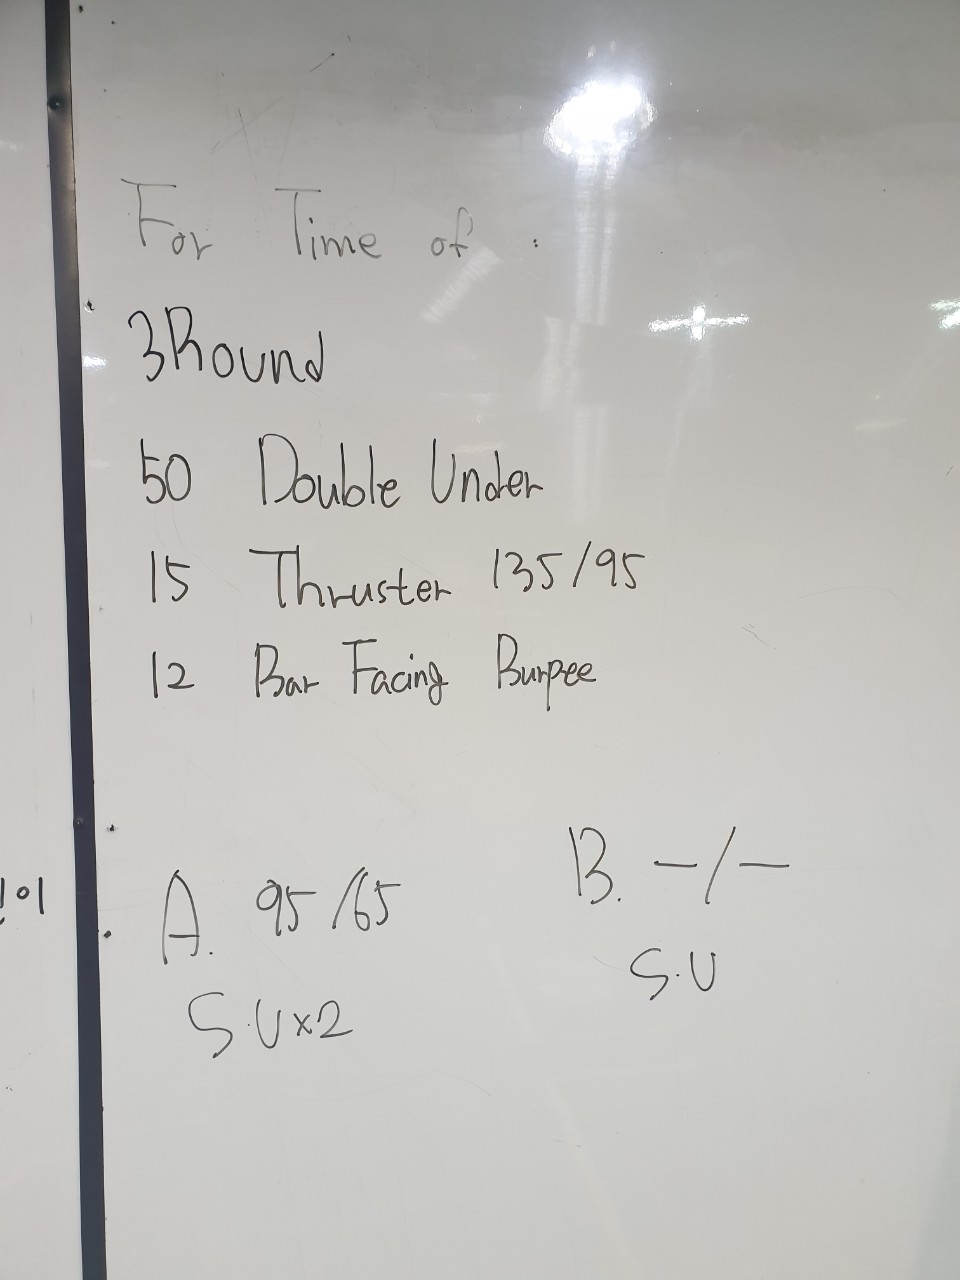 For Time of :
3Round
50 Double Under
15 Thruster 135/95
12 Bar Facing Burpee
A. 95/65
S.U×2
B. -/-
S.U